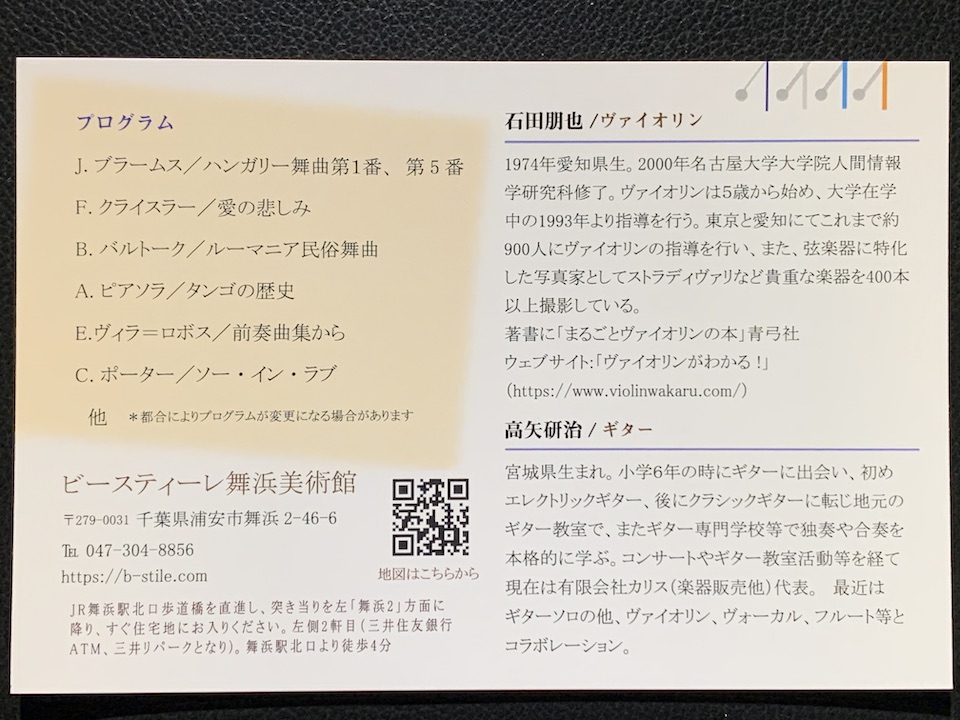 プログラム
J. ブラームス／ハンガリー舞曲第1番、 第５番
F. クライスラー／愛の悲しみ
B. バルトーク／ルーマニア民俗舞曲
A. ピアソラ／タンゴの歴史
E.ヴィラ＝ロボス／前奏曲集から
C. ポーター／ソー・イン・ラブ
他 ＊都合によりプログラムが変更になる場合があります
ビースティーレ舞浜美術館
〒279-0031 千葉県浦安市舞浜 2-46-6
℡ 047-304-8856
https://b-stile.com
地図はこちらから
JR舞浜駅北口歩道橋を直進し、突き当りを左「舞浜2」方面に
降り、すぐ住宅地にお入りください。左側2軒目（三井住友銀行
ATM、三井リパークとなり）。舞浜駅北口より徒歩4分
石田朋也 /ヴァイオリン
1974年愛知県生。2000年名古屋大学大学院人間情報
学研究科修了。ヴァイオリンは5歳から始め、大学在学
中の1993年より指導を行う。東京と愛知にてこれまで約
900人にヴァイオリンの指導を行い、また、弦楽器に特化
した写真家としてストラディヴァリなど貴重な楽器を400本
以上撮影している。
著書に「まるごとヴァイオリンの本」青弓社
ウェブサイト:「ヴァイオリンがわかる！」
（https://www.violinwakaru.com/）
高矢研治 / ギター
宮城県生まれ。小学6年の時にギターに出会い、初め
エレクトリックギター、後にクラシックギターに転じ地元の
ギター教室で、またギター専門学校等で独奏や合奏を
本格的に学ぶ。コンサートやギター教室活動等を経て
現在は有限会社カリス（楽器販売他）代表。 最近は
ギターソロの他、ヴァイオリン、ヴォーカル、フルート等と
コラボレーション。